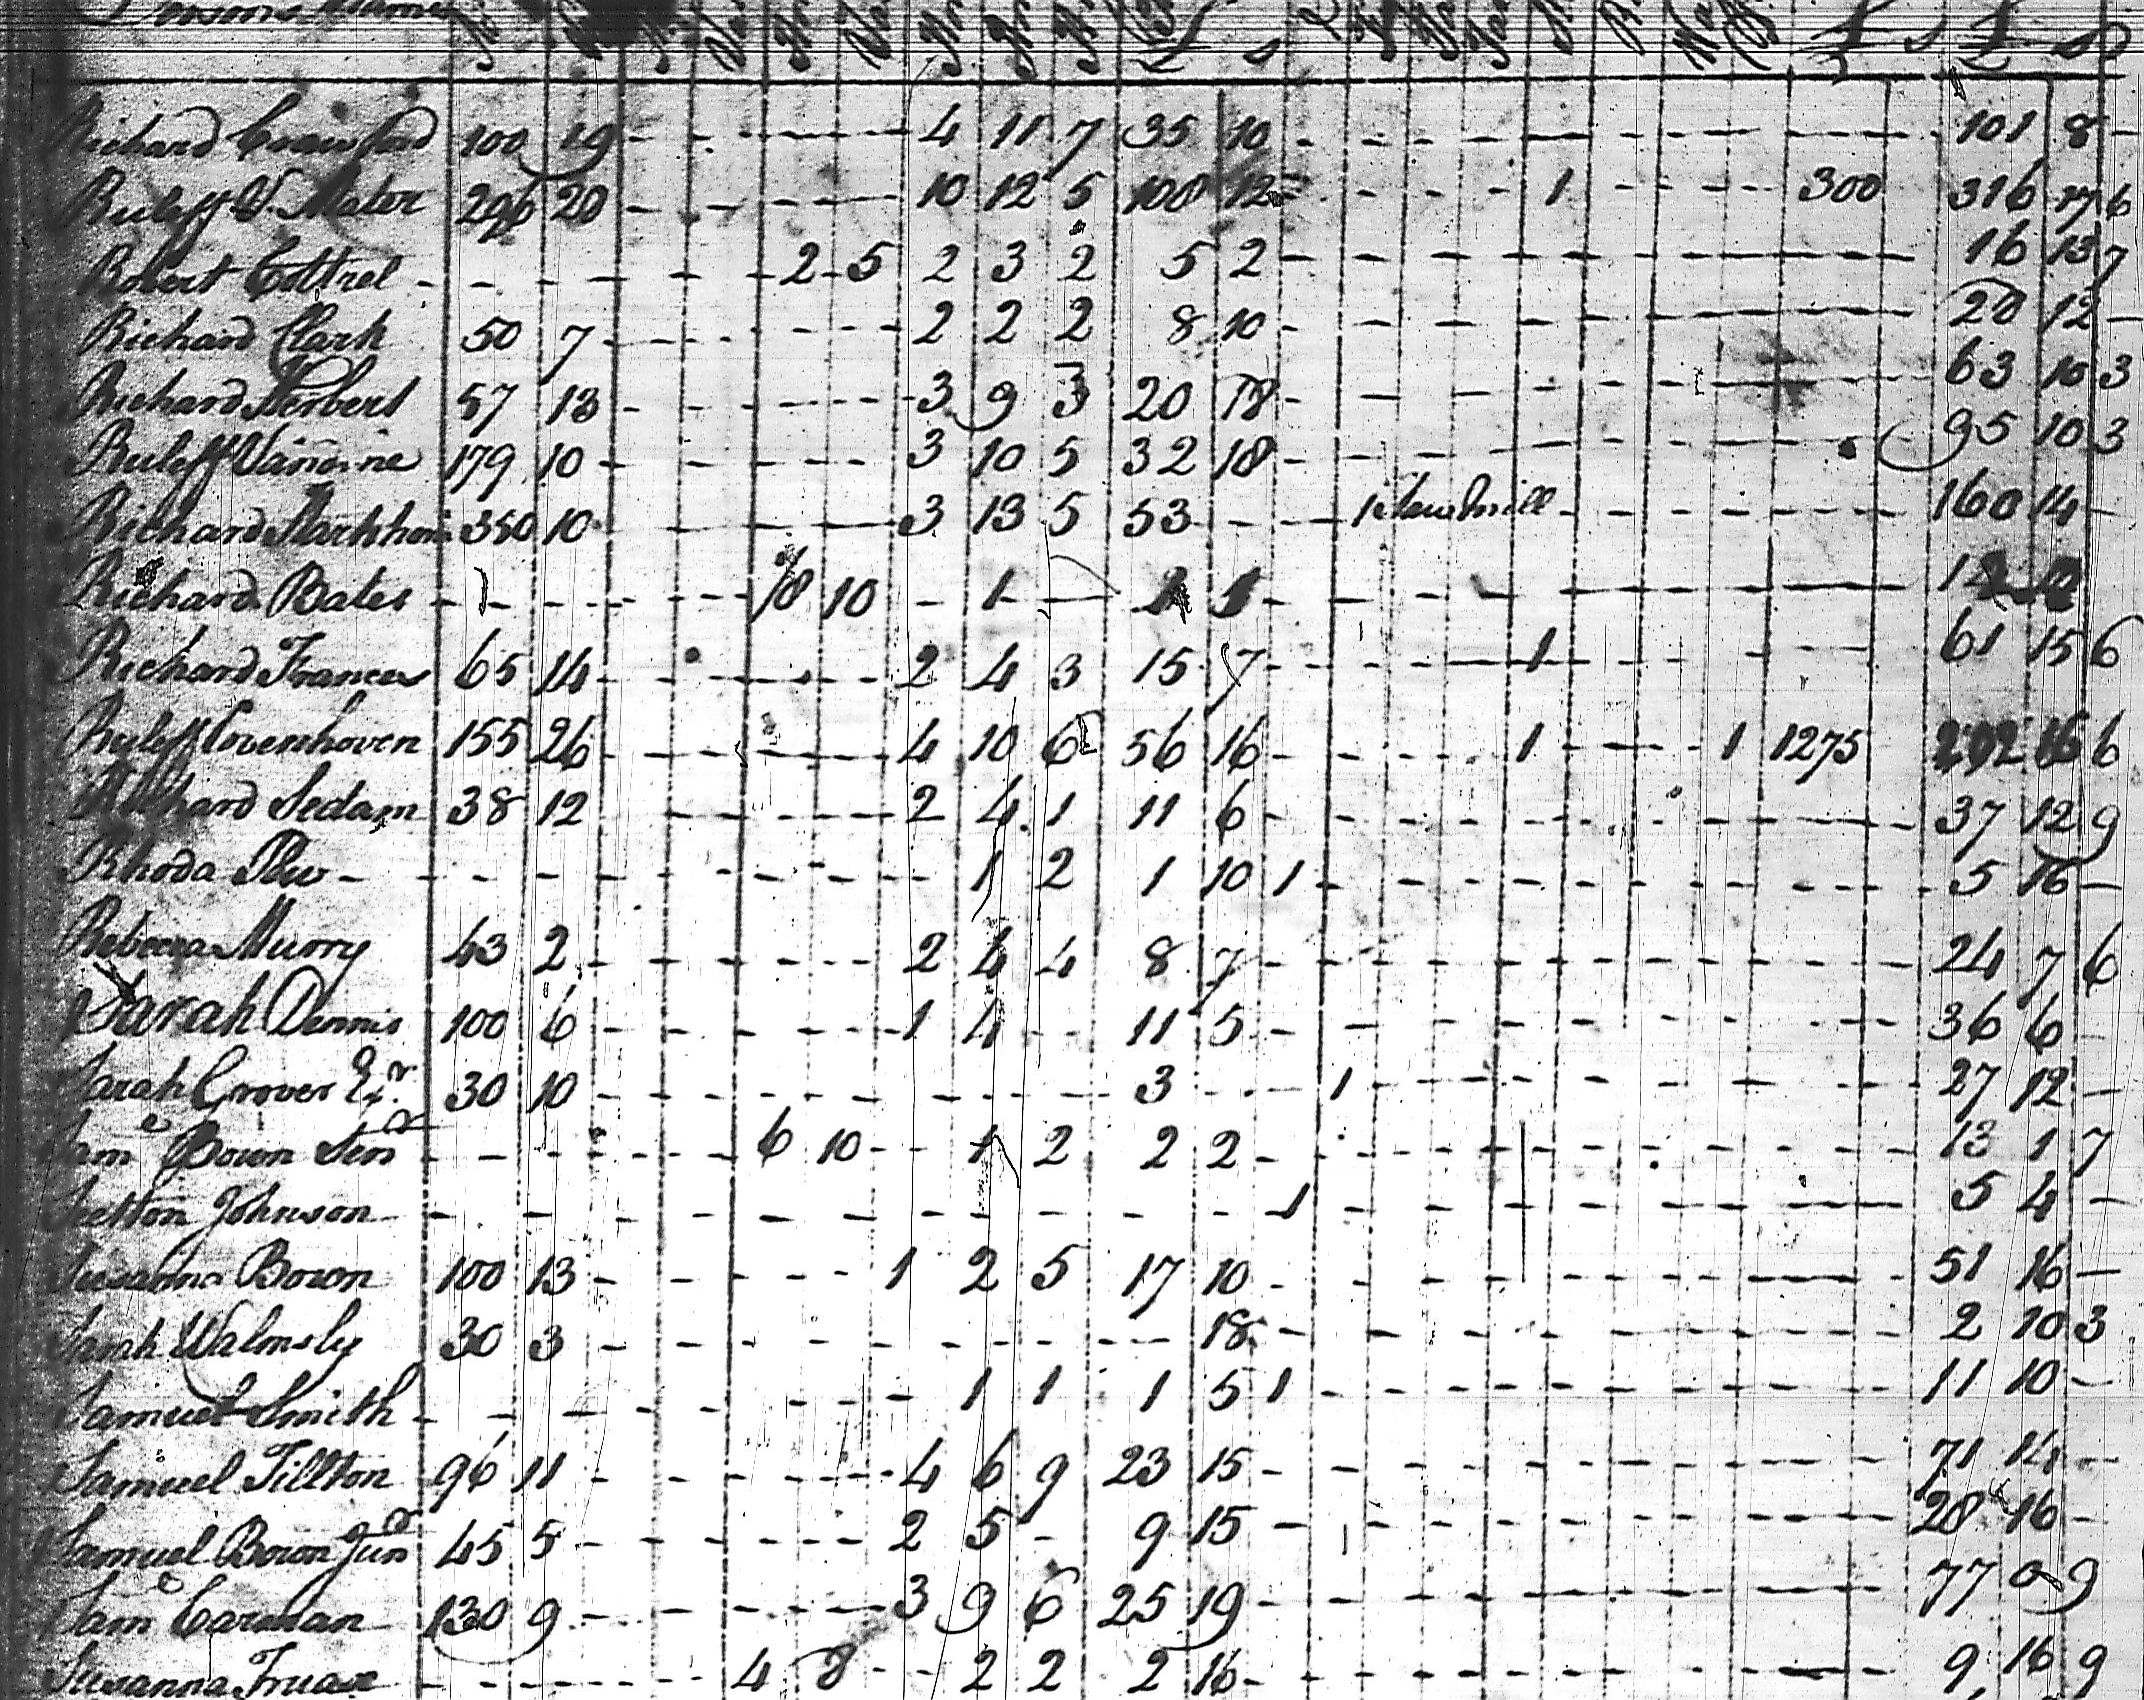 Persons Names £ s £ s £ s D
Richard Crawford 100 19 - - - 4 11 7 35 10 - - - 1 - - - 101 8 -
Ruleff V. Mater 296 20 - - - 10 12 5 108 12 - - - 1 - - - 300 316 17 6
Robert Cottrel - - - - 2 5 2 3 2 5 2 - - - 16 13 7
Richard Clark 50 7 - - - 2 2 2 8 10 - - - 20 12 -
Richard Herbert 57 13 - - - 3 9 3 20 18 - - - 63 10 3
Ruleff Vanorine 179 10 - - - 3 10 5 32 18 - - - 95 10 3
Richard 350 10 - - - 3 13 5 53 - - 1 Saw Mill - - - 160 14 -
Richard Bates - 1 - - - 18 10 - 1 - 1 1 - - -
Richard Frances 65 14 - - - 2 4 3 15 7 - - - 1 - - - 61 15 6
Ruleff Covenhoven 155 26 - - - 4 10 6 56 16 - - - 1 - - 1 1275 292 16 6
Richard Sedam 38 12 - - - 2 4 1 11 6 - - - 37 12 9
Rhoda Plew - - - - 1 2 1 10 1 - - - 5 16 -
Rebecca Murry 43 2 - - - 2 4 4 8 7 - - - 24 7 6
Sarah Dennis 100 6 - - - 1 4 - - 11 5 - - - 36 6 -
Sarah Grover Exr. 30 10 - - - 3 - - 1 - - - 27 12 -
Same Bown Senr - - - 6 10 - - 1 2 2 2 - - - 13 1 7
Johnson - - - 1 - - - 5 4 -
Susanna Bown 100 13 - - - 1 2 5 17 10 - - - 51 16 -
Sarah Walmsly 30 3 - - - 18 - - - 2 10 3
Samuel Smith - - - 1 1 1 5 1 - - - 11 10 -
Samuel Tillton 96 11 - - - 4 6 9 23 15 - - - 71 14 -
Samuel Bown Junr 45 5 - - - 2 5 - 9 15 - - - 28 16 -
Same Carman 130 9 - - - 3 9 6 25 19 - - - 77 0 9
Susanna Truax - - - 4 8 - - 2 2 2 16 - - - 9 16 9